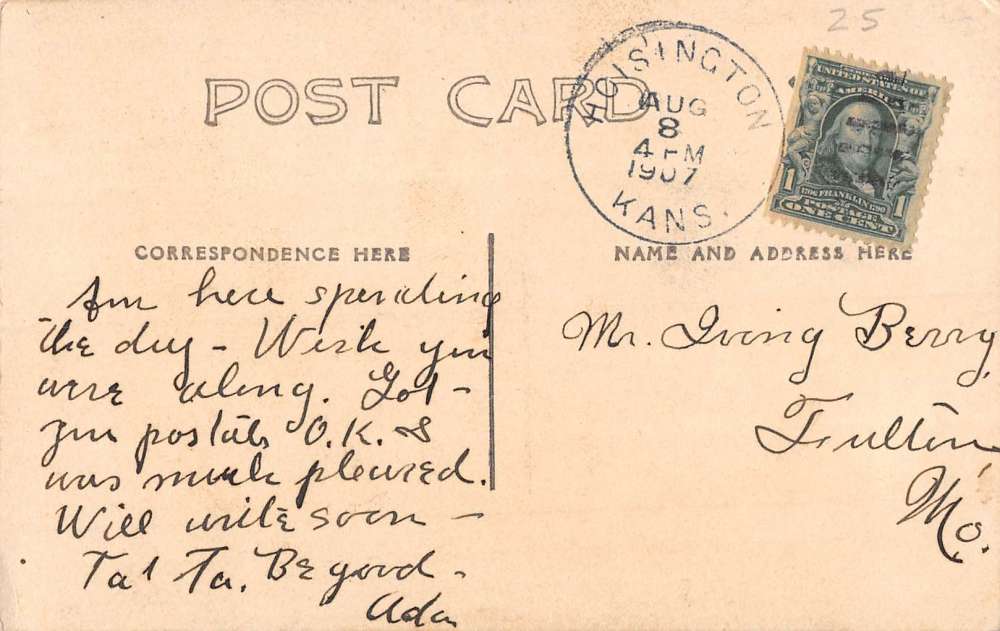 25
POST CARD
HOISINGTON
AUG
8
4 PM
1907
KANS.
UNITED STATES OF
AMERICA
1706 FRANKLIN 1790
POSTAGE
1 ONE CENT 1
CORRESPONDENCE HERE
NAME AND ADDRESS HERE
Am here spending
the day - Wish you
were along. Got -
your postals O.K. &
was much pleased.
Will write soon -
Ta! Ta. Be good -
Ada
Mr. Irving Berry,
Fulton
Mo.